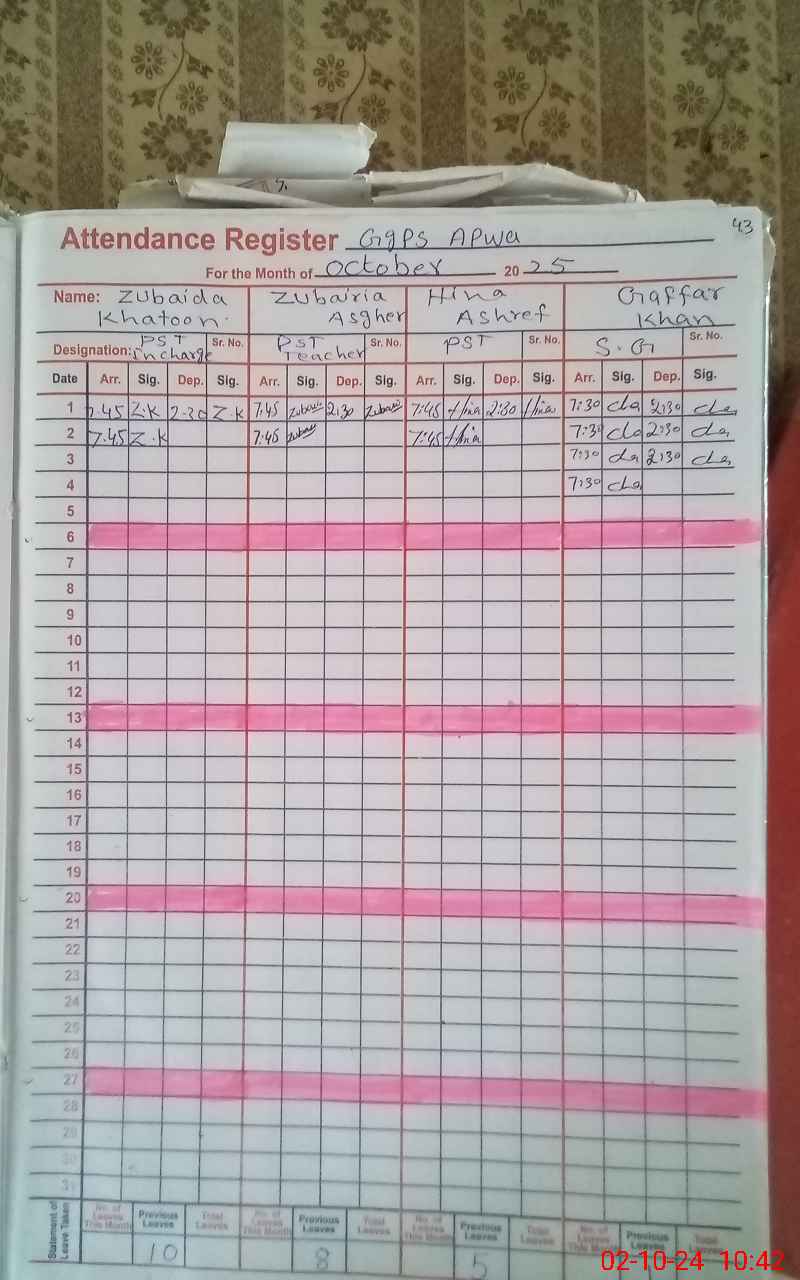 43
Attendance Register GgPS APWA
For the Month of October 20 25
Name: Zubaida Khatoon. Zubairia Asgher Hina Ashref Gaffar Khan
Designation: PST Incharge Sr. No. PST Teacher Sr. No. PST Sr. No. S.G Sr. No.
Date Arr. Sig. Dep. Sig. Arr. Sig. Dep. Sig. Arr. Sig. Dep. Sig. Arr. Sig. Dep. Sig.
1 7.45 Z.K 2-30 Z.K 7:45 2:30 7:45 Hina 2:30 Hina 7:30 2:30
2 7.45 Z.K 7:45 7:45 Hina 7:30 2:30
3 7:30 2:30
4 7:30
5
6
7
8
9
10
11
12
13
14
15
16
17
18
19
20
21
22
23
24
25
26
27
28
29
30
31
Statement of Leave Taken No. of Leaves This Month Previous Leaves Total Leaves No. of Leaves This Month Previous Leaves Total Leaves No. of Leaves This Month Previous Leaves Total Leaves No. of Leaves This Month Previous Leaves Total Leaves
10 8 5
02-10-24 10:42